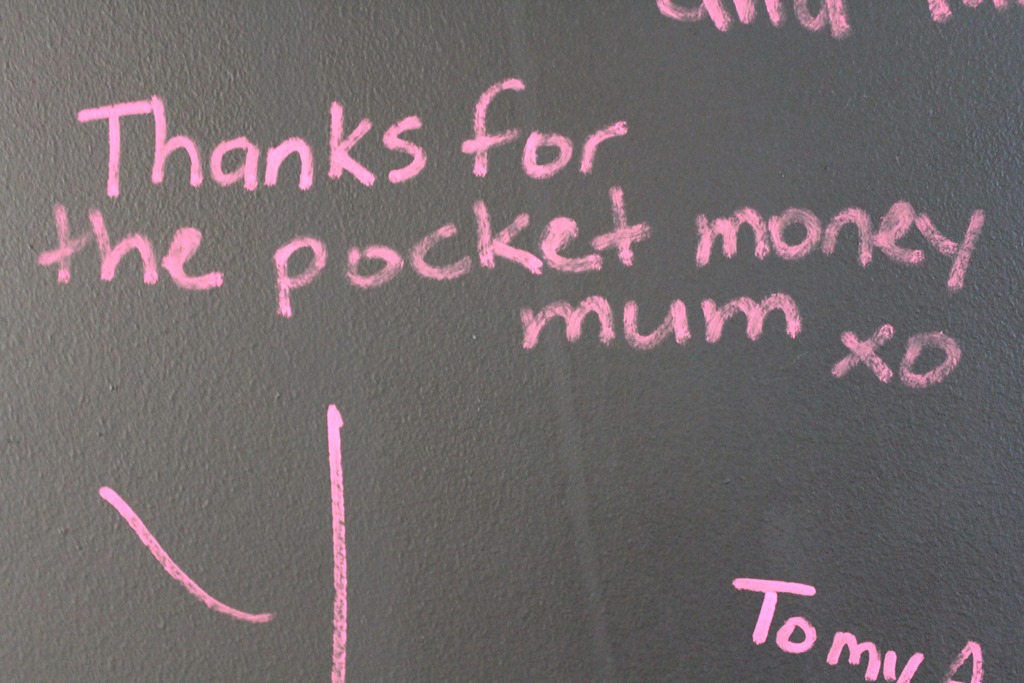 and
Thanks for
the pocket money
mum xo
Tomy